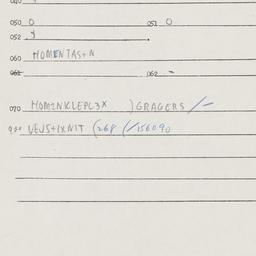 040
050 0 051 0
052 Y
060 HOMENTAS+N
061 062 -
070 HOM2NKLEPL3X )GRAGERS /-
VEJS+1XNIT (268 (/156090